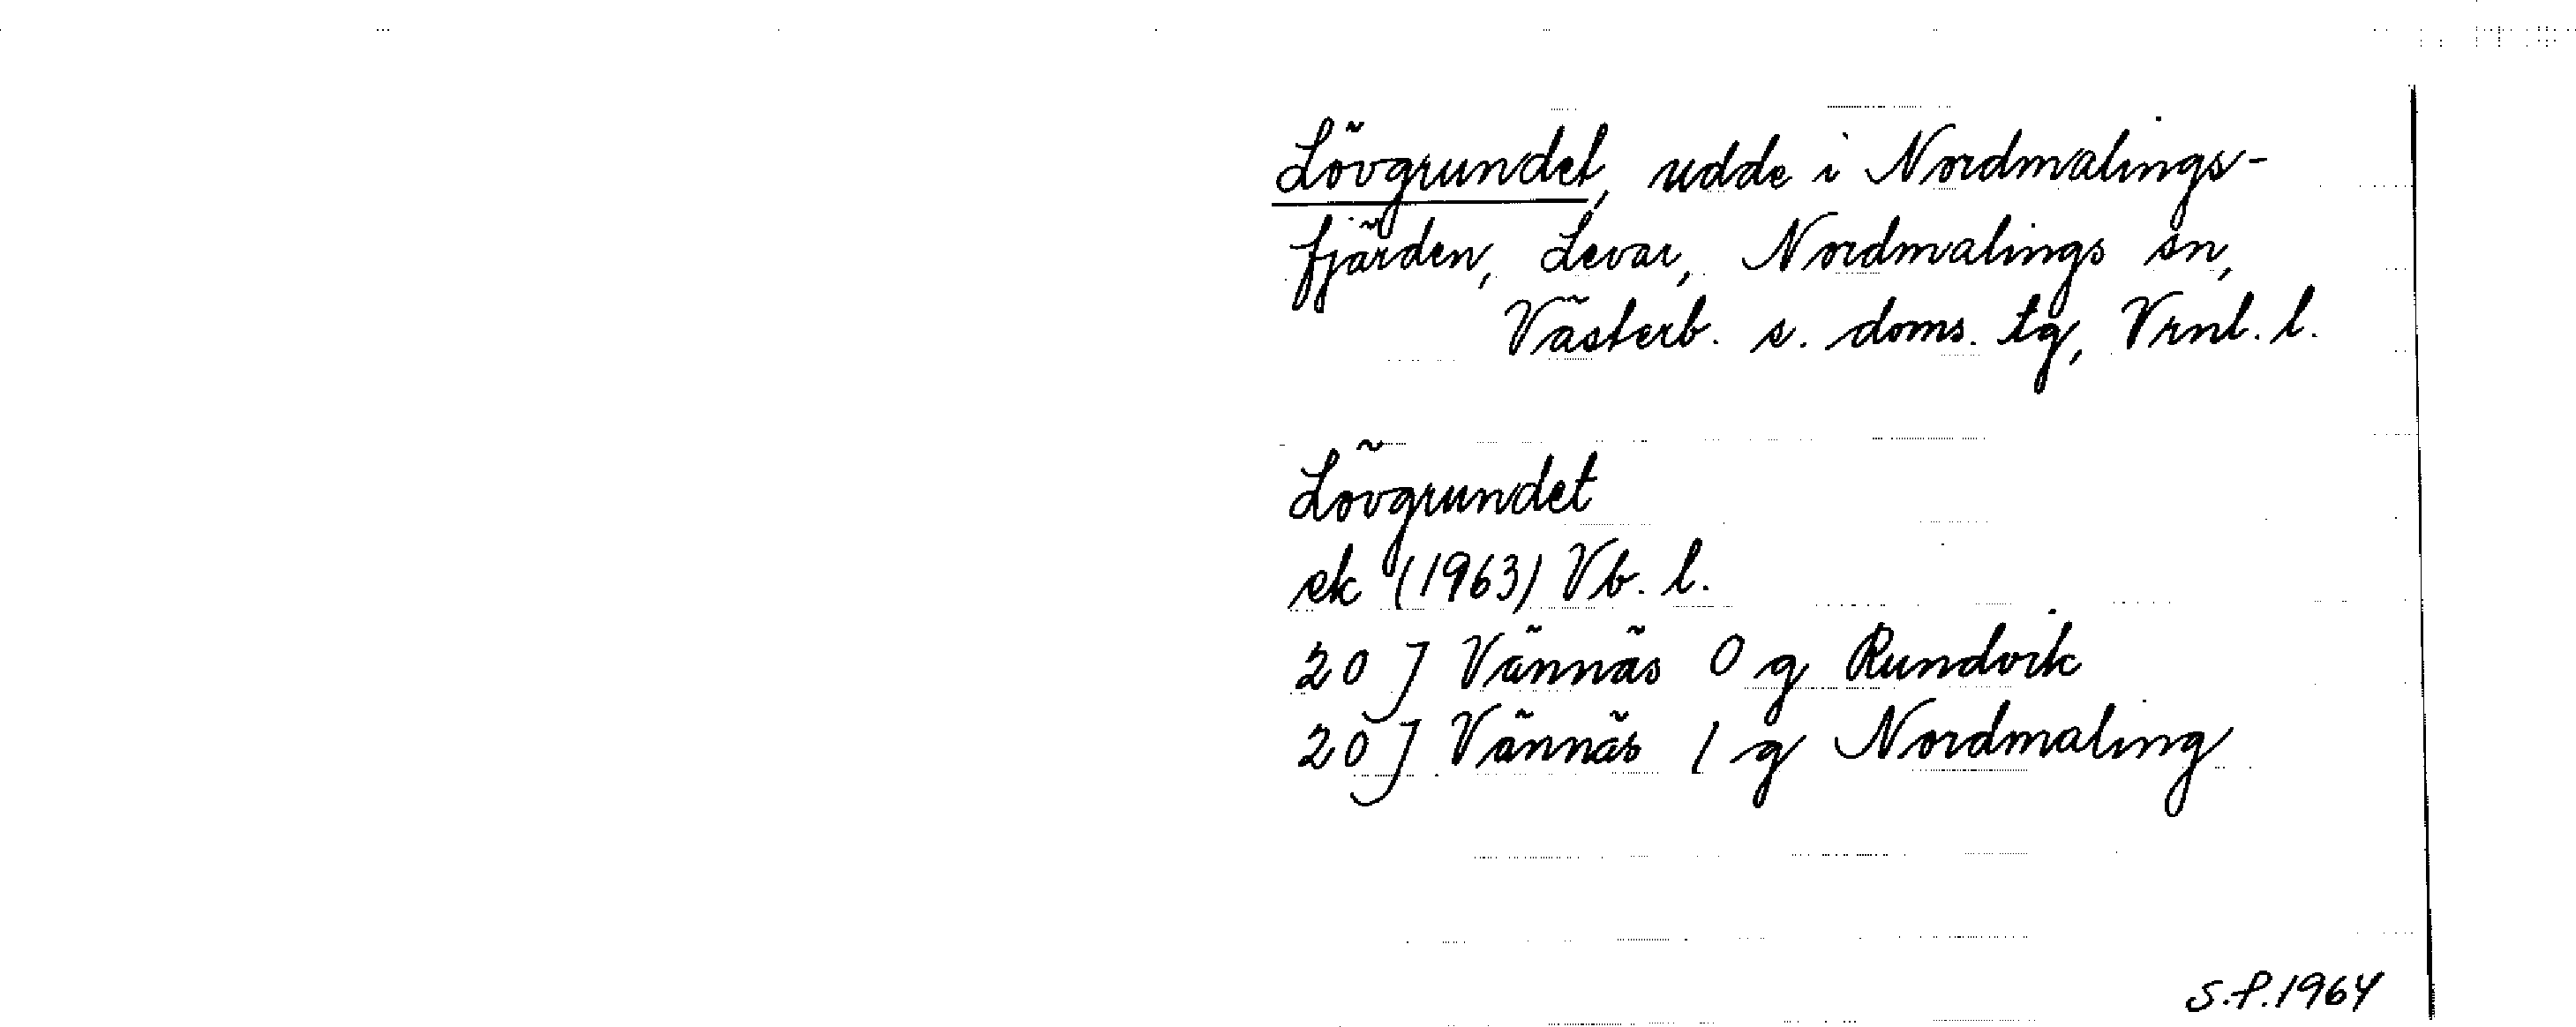 Lövgrundet, udde i Nordmalings-
fjärden, Levar, Nordmalings sn,
Västerb. s. doms. tg, Vrnl. l.
Lövgrundet
ek (1963) Vb. l.
20 J Vännäs 0 g Rundvik
20 J Vännäs 1 g Nordmaling
S.P. 1964